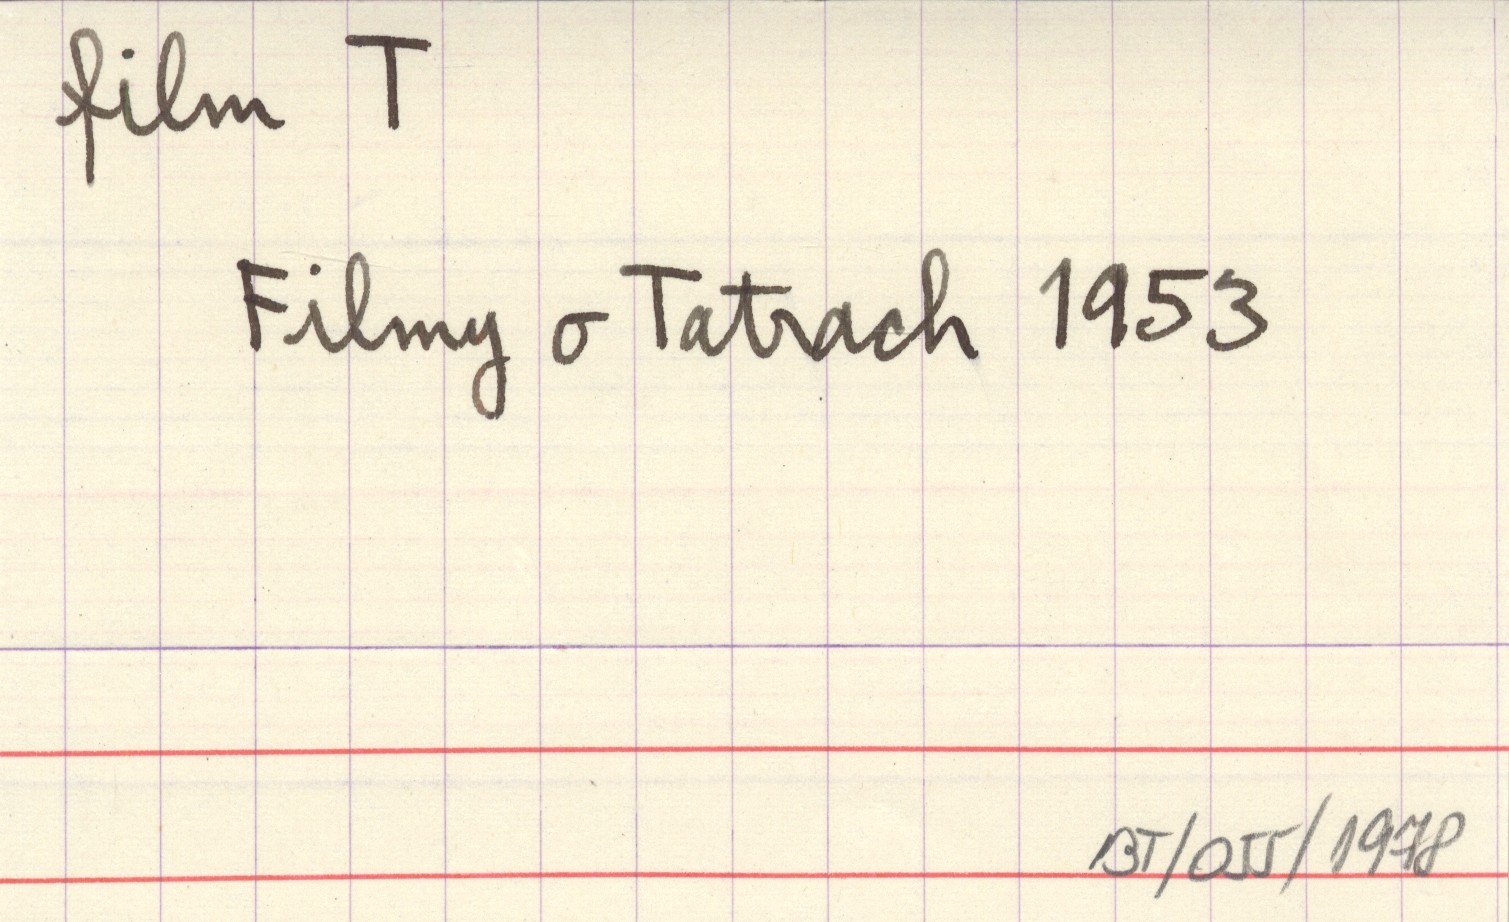 film T
Filmy o Tatrach 1953
BT/OJJ/1978